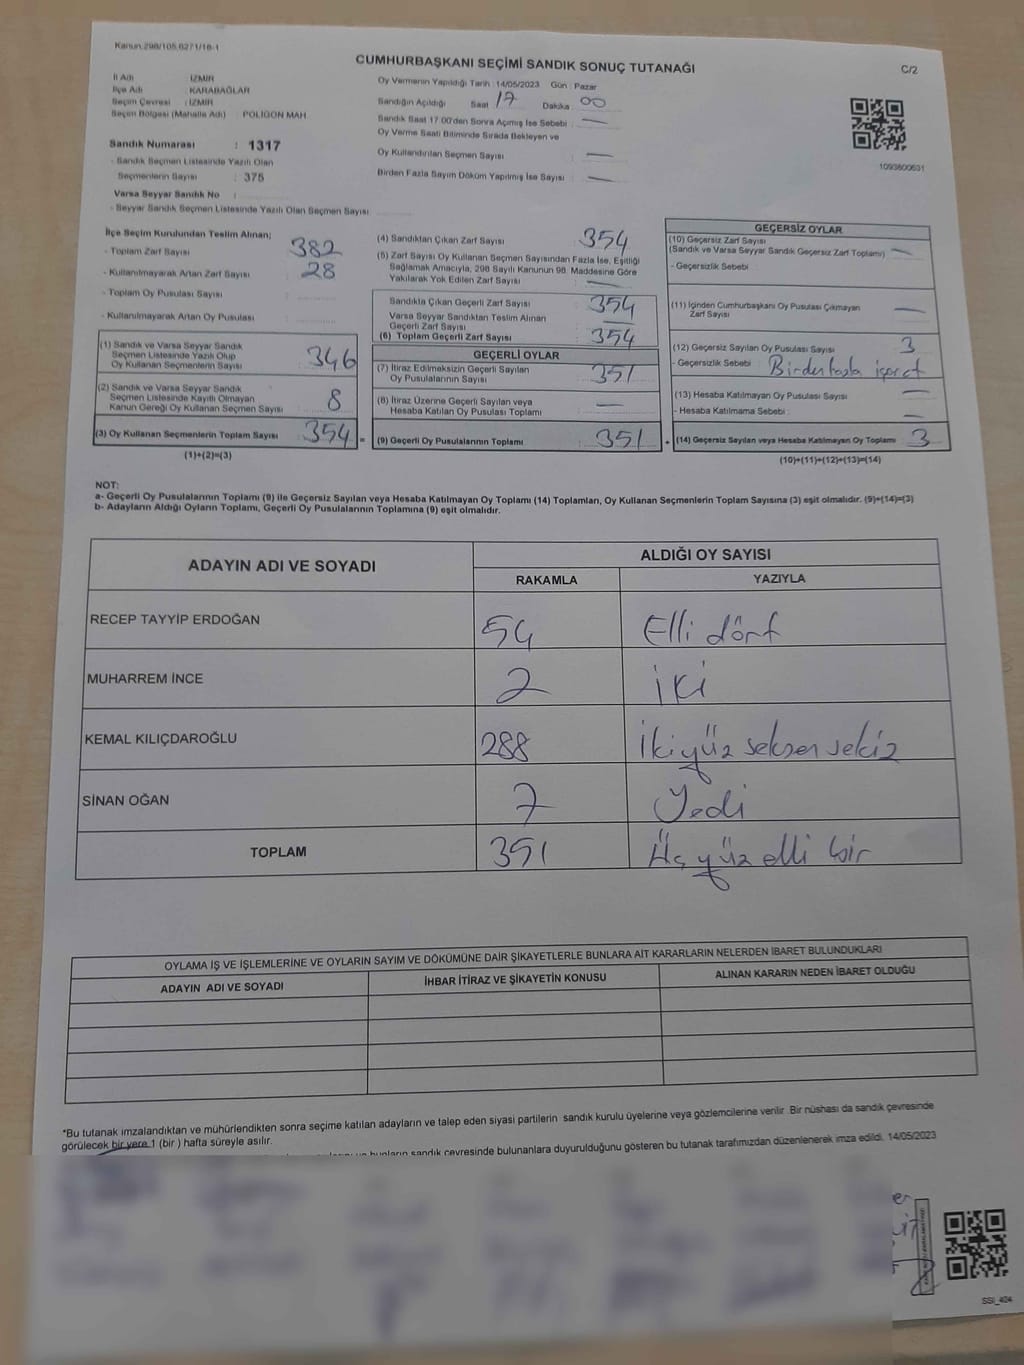 Kanun.298/105,6271/18-1
CUMHURBAŞKANI SEÇİMİ SANDIK SONUÇ TUTANAĞI
C/2
İl Adı : İZMİR
İlçe Adı : KARABAĞLAR
Seçim Çevresi : İZMİR
Seçim Bölgesi (Mahalle Adı) POLİGON MAH
Sandık Numarası : 1317
- Sandık Seçmen Listesinde Yazılı Olan
Seçmenlerin Sayısı : 375
Varsa Seyyar Sandık No :
- Seyyar Sandık Seçmen Listesinde Yazılı Olan Seçmen Sayısı
Oy Vermenin Yapıldığı Tarih : 14/05/2023 Gün : Pazar
Sandığın Açıldığı Saat 17 Dakika : 00
Sandık Saat 17.00'den Sonra Açımış İse Sebebi : —
Oy Verme Saati Bitiminde Sırada Bekleyen ve
Oy Kullandırılan Seçmen Sayısı : —
Birden Fazla Sayım Döküm Yapılmış İse Sayısı : —
1093800631
İlçe Seçim Kurulundan Teslim Alınan;
- Toplam Zarf Sayısı : 382
- Kullanılmayarak Artan Zarf Sayısı : 28
- Toplam Oy Pusulası Sayısı :
- Kullanılmayarak Artan Oy Pusulası :
(1) Sandık ve Varsa Seyyar Sandık
Seçmen Listesinde Yazılı Olup
Oy Kullanan Seçmenlerin Sayısı : 346
(2) Sandık ve Varsa Seyyar Sandık
Seçmen Listesinde Kayıtlı Olmayan
Kanun Gereği Oy Kullanan Seçmen Sayısı : 8
(3) Oy Kullanan Seçmenlerin Toplam Sayısı : 354 =
(1)+(2)=(3)
(4) Sandıktan Çıkan Zarf Sayısı : 354
(5) Zarf Sayısı Oy Kullanan Seçmen Sayısından Fazla İse, Eşitliği
Sağlamak Amacıyla, 298 Sayılı Kanunun 98. Maddesine Göre
Yakılarak Yok Edilen Zarf Sayısı : —
Sandıkta Çıkan Geçerli Zarf Sayısı : 354
Varsa Seyyar Sandıktan Teslim Alınan
Geçerli Zarf Sayısı : —
(6) Toplam Geçerli Zarf Sayısı : 354
GEÇERLİ OYLAR
(7) İtiraz Edilmeksizin Geçerli Sayılan
Oy Pusulalarının Sayısı : 351
(8) İtiraz Üzerine Geçerli Sayılan veya
Hesaba Katılan Oy Pusulası Toplamı : —
(9) Geçerli Oy Pusulalarının Toplamı : 351 +
GEÇERSİZ OYLAR
(10) Geçersiz Zarf Sayısı
(Sandık ve Varsa Seyyar Sandık Geçersiz Zarf Toplamı) : —
- Geçersizlik Sebebi
(11) İçinden Cumhurbaşkanı Oy Pusulası Çıkmayan
Zarf Sayısı : —
(12) Geçersiz Sayılan Oy Pusulası Sayısı : 3
- Geçersizlik Sebebi : Birden fazla işaret
(13) Hesaba Katılmayan Oy Pusulası Sayısı : —
- Hesaba Katılmama Sebebi : —
(14) Geçersiz Sayılan veya Hesaba Katılmayan Oy Toplamı : 3
(10)+(11)+(12)+(13)=(14)
NOT:
a- Geçerli Oy Pusulalarının Toplamı (9) ile Geçersiz Sayılan veya Hesaba Katılmayan Oy Toplamı (14) Toplamları, Oy Kullanan Seçmenlerin Toplam Sayısına (3) eşit olmalıdır. (9)+(14)=(3)
b- Adayların Aldığı Oyların Toplamı, Geçerli Oy Pusulalarının Toplamına (9) eşit olmalıdır.
ADAYIN ADI VE SOYADI
ALDIĞI OY SAYISI
RAKAMLA YAZIYLA
RECEP TAYYİP ERDOĞAN 54 Elli dört
MUHARREM İNCE 2 iki
KEMAL KILIÇDAROĞLU 288 İkiyüz seksen sekiz
SİNAN OĞAN 7 Yedi
TOPLAM 351 Üç yüz elli bir
OYLAMA İŞ VE İŞLEMLERİNE VE OYLARIN SAYIM VE DÖKÜMÜNE DAİR ŞİKAYETLERLE BUNLARA AİT KARARLARIN NELERDEN İBARET BULUNDUKLARI
ADAYIN ADI VE SOYADI İHBAR İTİRAZ VE ŞİKAYETİN KONUSU ALINAN KARARIN NEDEN İBARET OLDUĞU
*Bu tutanak imzalandıktan ve mühürlendikten sonra seçime katılan adayların ve talep eden siyasi partilerin sandık kurulu üyelerine veya gözlemcilerine verilir. Bir nüshası da sandık çevresinde
görülecek bir yere 1 (bir ) hafta süreyle asılır.
bunların sandık çevresinde bulunanlara duyurulduğunu gösteren bu tutanak tarafımızdan düzenlenerek imza edildi. 14/05/2023
SSI_404